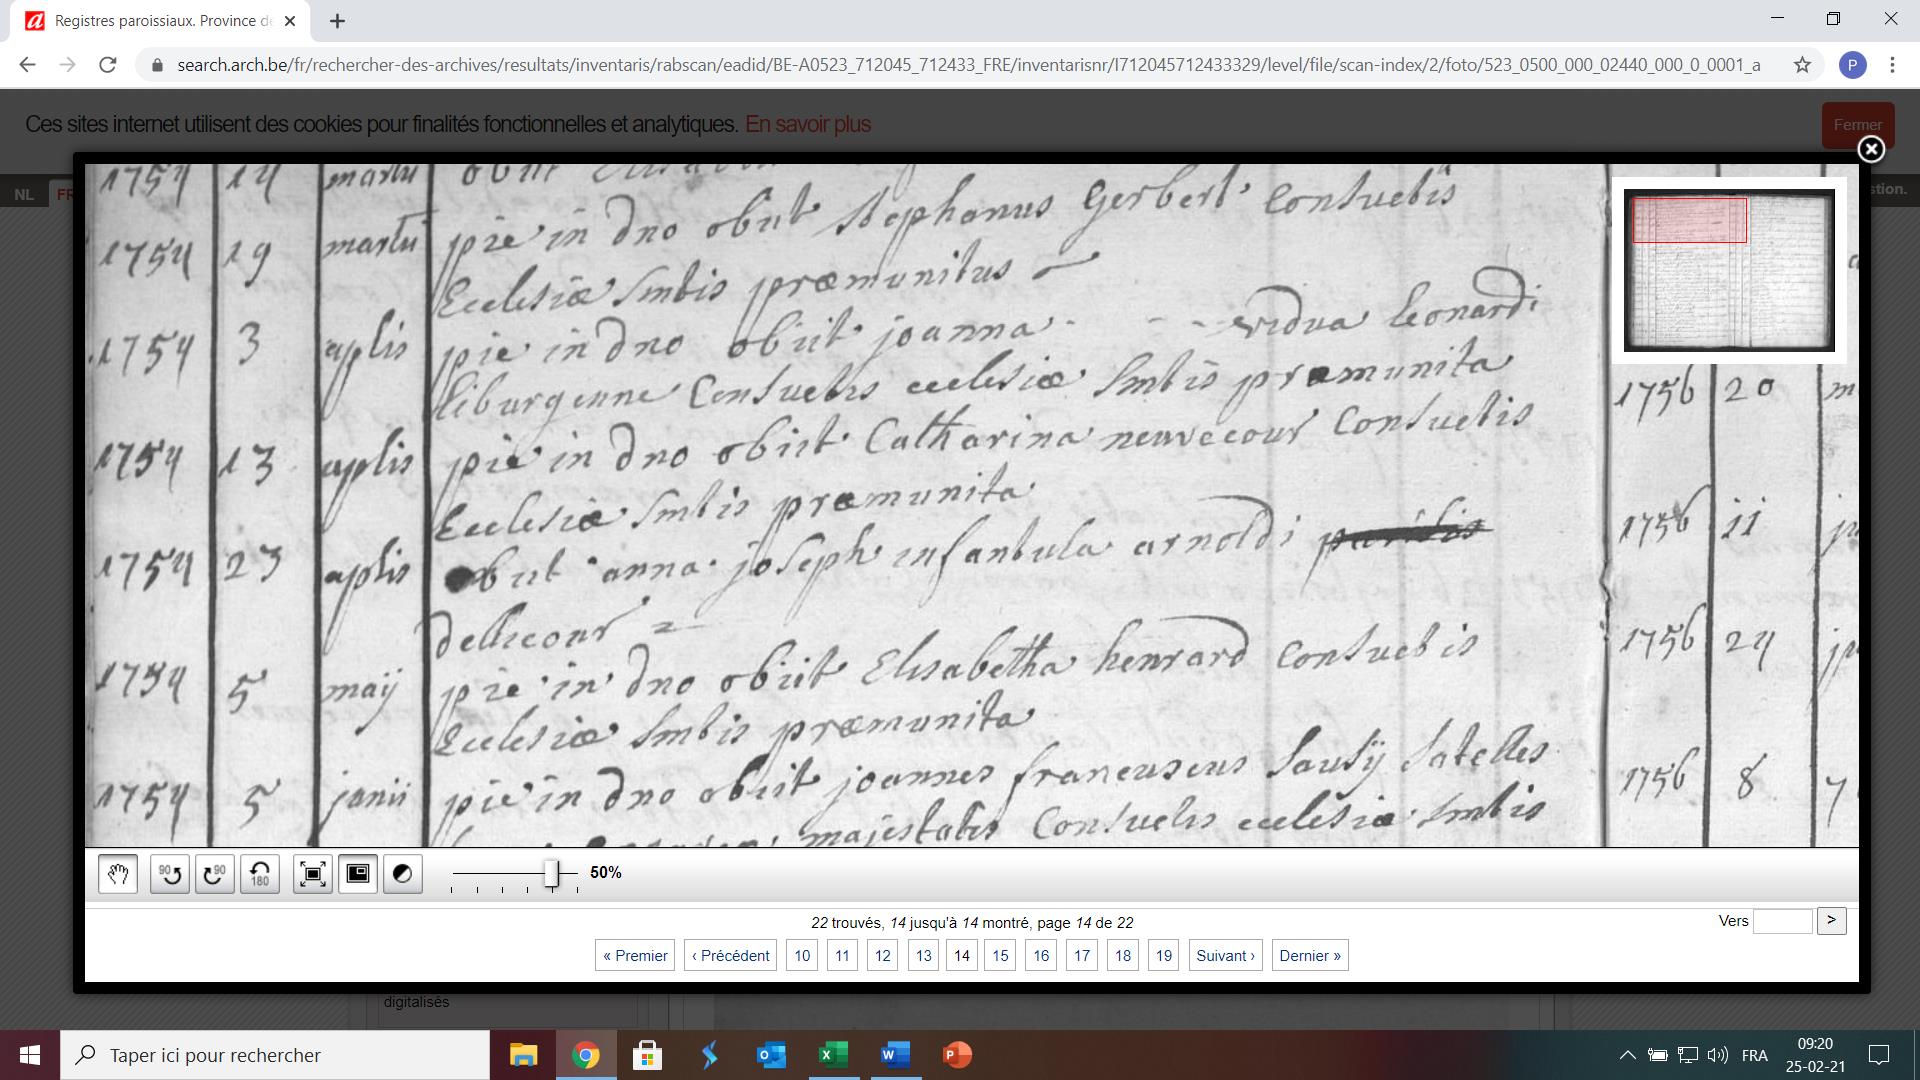 Registres paroissiaux. Province de
search.arch.be/fr/rechercher-des-archives/resultats/inventaris/rabscan/eadid/BE-A0523_712045_712433_FRE/inventarisnr/I712045712433329/level/file/scan-index/2/foto/523_0500_000_02440_000_0_0001_a
P
Ces sites internet utilisent des cookies pour finalités fonctionnelles et analytiques. En savoir plus
Fermer
NL FR
stion.
1754 14 martii obiit
1754 19 martii pie in dno obiit stephanus Gerbert consuetis
Ecclesiæ Smtis præmunitus
1754 3 aplis pie in dno obiit joanna - - - vidua leonardi
liburgenne Consuetis ecclesiæ Smtis præmunita
1756 20 m
1754 13 aplis pie in dno obiit Catharina neuvecour Consuetis
Ecclesiæ Smtis præmunita
1756 11 ju
1754 23 aplis obiit anna joseph infantula arnoldi
dellicour
1756 24 ju
1754 5 maij pie in dno obiit Elisabetha henrard consuetis
Ecclesiæ Smtis præmunita
1754 5 junii pie in dno obiit joannes franciscus Sausÿ Satelles
majestatis Consuetis ecclesiæ Smtis
1756 8 7
90 90 180
50%
22 trouvés, 14 jusqu'à 14 montré, page 14 de 22
Vers >
« Premier ‹ Précédent 10 11 12 13 14 15 16 17 18 19 Suivant › Dernier »
digitalisés
Taper ici pour rechercher
FRA
09:20
25-02-21